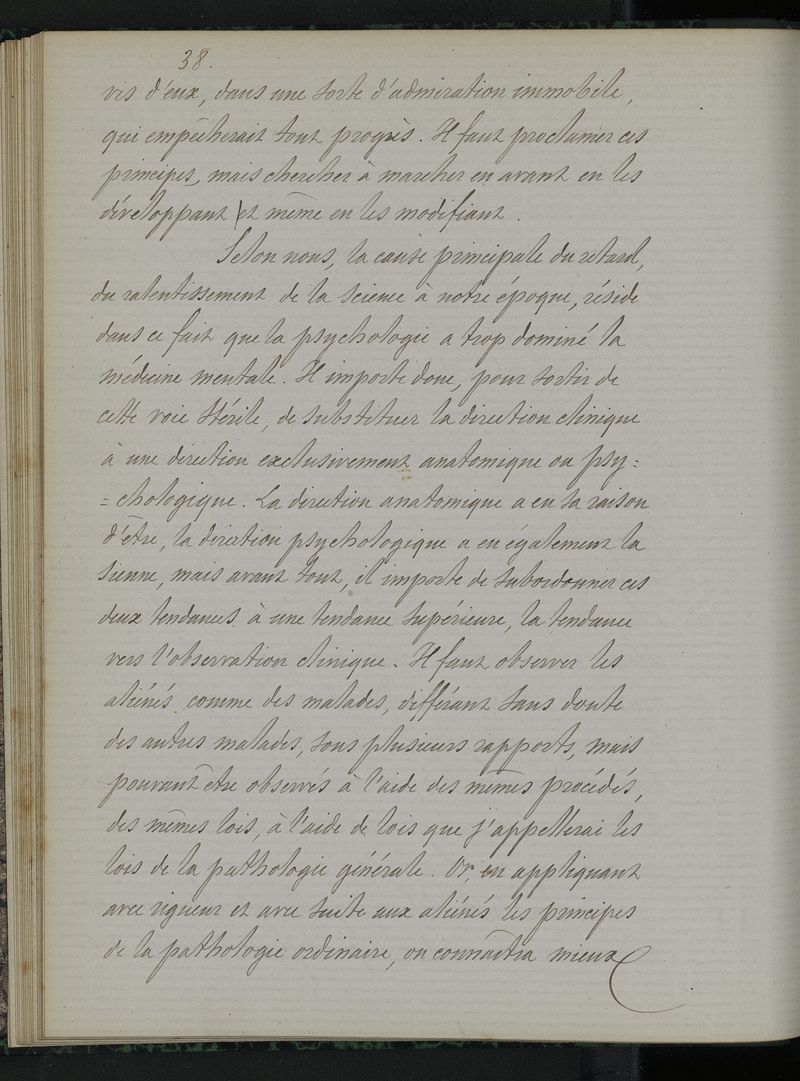 38.
vis d'eux, dans une sorte d'admiration immobile,
qui empêcherait tout progrès. Il faut proclamer ces
principes, mais chercher à marcher en avant en les
développant et même en les modifiant.
Selon nous, la cause principale du retard,
du ralentissement de la science à notre époque, réside
dans ce fait que la psychologie a trop dominé la
médecine mentale. Il importe donc, pour sortir de
cette voie stérile, de substituer la direction clinique
à une direction exclusivement anatomique ou psy=
=chologique. La direction anatomique a eu sa raison
d'être, la direction psychologique a eu également la
sienne, mais avant tout, il importe de subordonner ces
deux tendances à une tendance supérieure, la tendance
vers l'observation clinique. Il faut observer les
aliénés comme des malades, différant sans doute
des autres malades, sous plusieurs rapports, mais
pouvant être observés à l'aide des mêmes procédés,
des mêmes lois, à l'aide de lois que j'appellerai les
lois de la pathologie générale. Or, en appliquant
avec rigueur et avec suite aux aliénés les principes
de la pathologie ordinaire, on connaîtra mieux